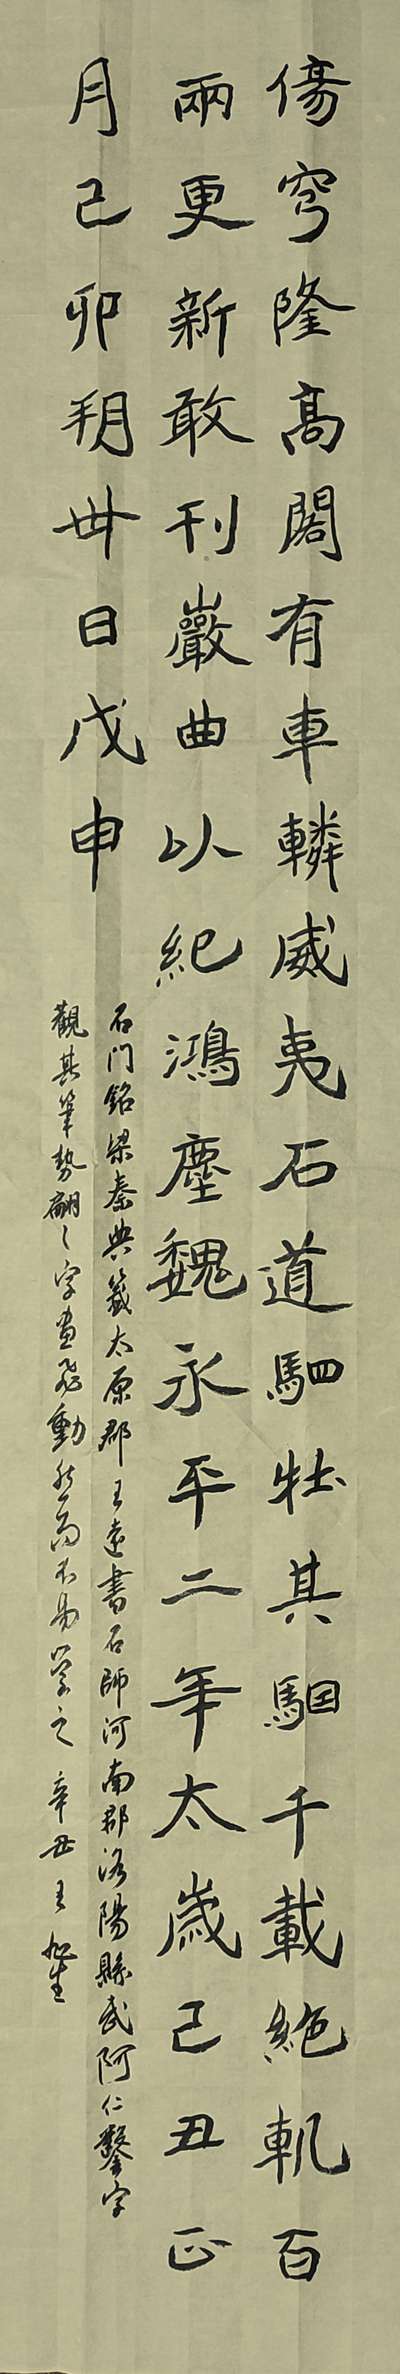 傍穹隆高閣有車轔威夷石道駟牡其駰千載絶軌百
兩更新敢刊巖曲以紀鴻塵魏永平二年太歲己丑正
月己卯朔卅日戊申
石门銘梁秦典籤太原郡王遠書石師河南郡洛陽縣武阿仁鑿字
觀其筆勢翩々字畫飛動然而不易学之 辛丑王